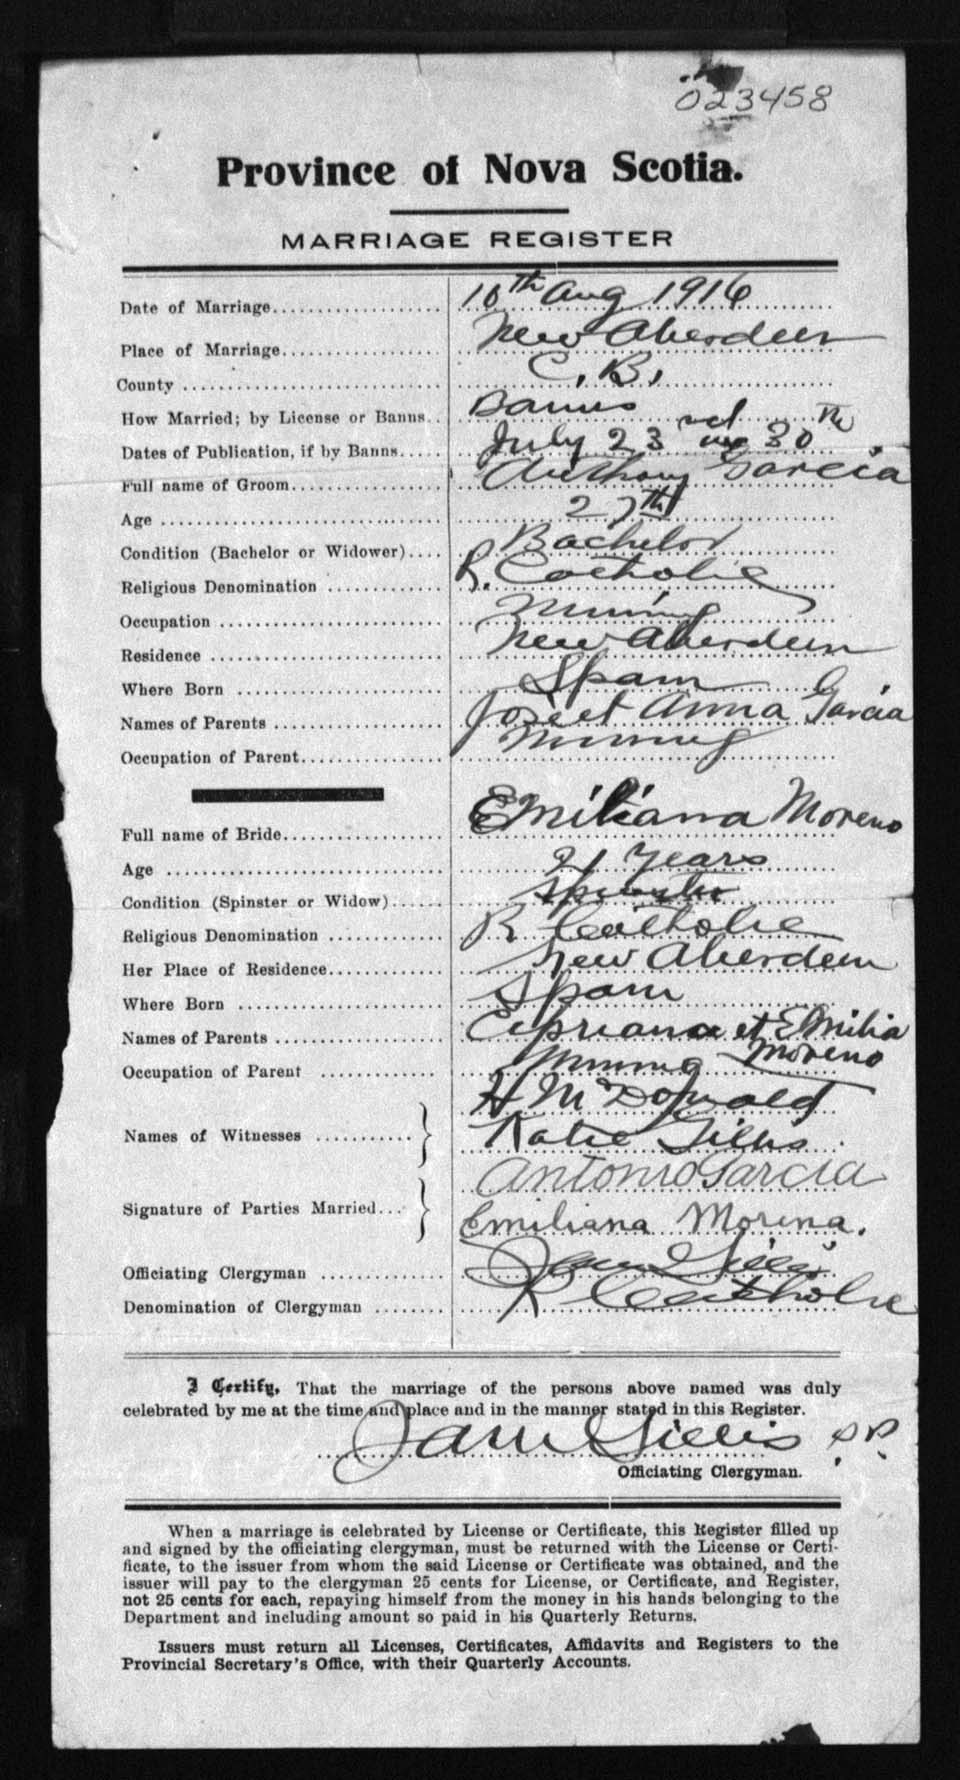 023458
Province of Nova Scotia.
MARRIAGE REGISTER
Date of Marriage 10th Aug 1916
Place of Marriage New Aberdeen
County C. B.
How Married; by License or Banns Banns
Dates of Publication, if by Banns July 23 30th
Full name of Groom Anthony Garcia
Age 27th
Condition (Bachelor or Widower) Bachelor
Religious Denomination R. Catholic
Occupation Mining
Residence New Aberdeen
Where Born Spain
Names of Parents Jose et Anna Garcia
Occupation of Parent Mining
Full name of Bride Emiliana Moreno
Age 21 years
Condition (Spinster or Widow) Spinster
Religious Denomination R Catholic
Her Place of Residence New Aberdeen
Where Born Spain
Names of Parents Cipriano et Emilia Moreno
Occupation of Parent Mining
Names of Witnesses H McDonald
Katie Gillis
Signature of Parties Married Antonio Garcia
Emiliana Morena.
Officiating Clergyman Gillis
Denomination of Clergyman R Catholic
I Certify, That the marriage of the persons above named was duly
celebrated by me at the time and place and in the manner stated in this Register.
Gillis
Officiating Clergyman.
When a marriage is celebrated by License or Certificate, this Register filled up
and signed by the officiating clergyman, must be returned with the License or Certi-
ficate, to the issuer from whom the said License or Certificate was obtained, and the
issuer will pay to the clergyman 25 cents for License, or Certificate, and Register,
not 25 cents for each, repaying himself from the money in his hands belonging to the
Department and including amount so paid in his Quarterly Returns.
Issuers must return all Licenses, Certificates, Affidavits and Registers to the
Provincial Secretary's Office, with their Quarterly Accounts.